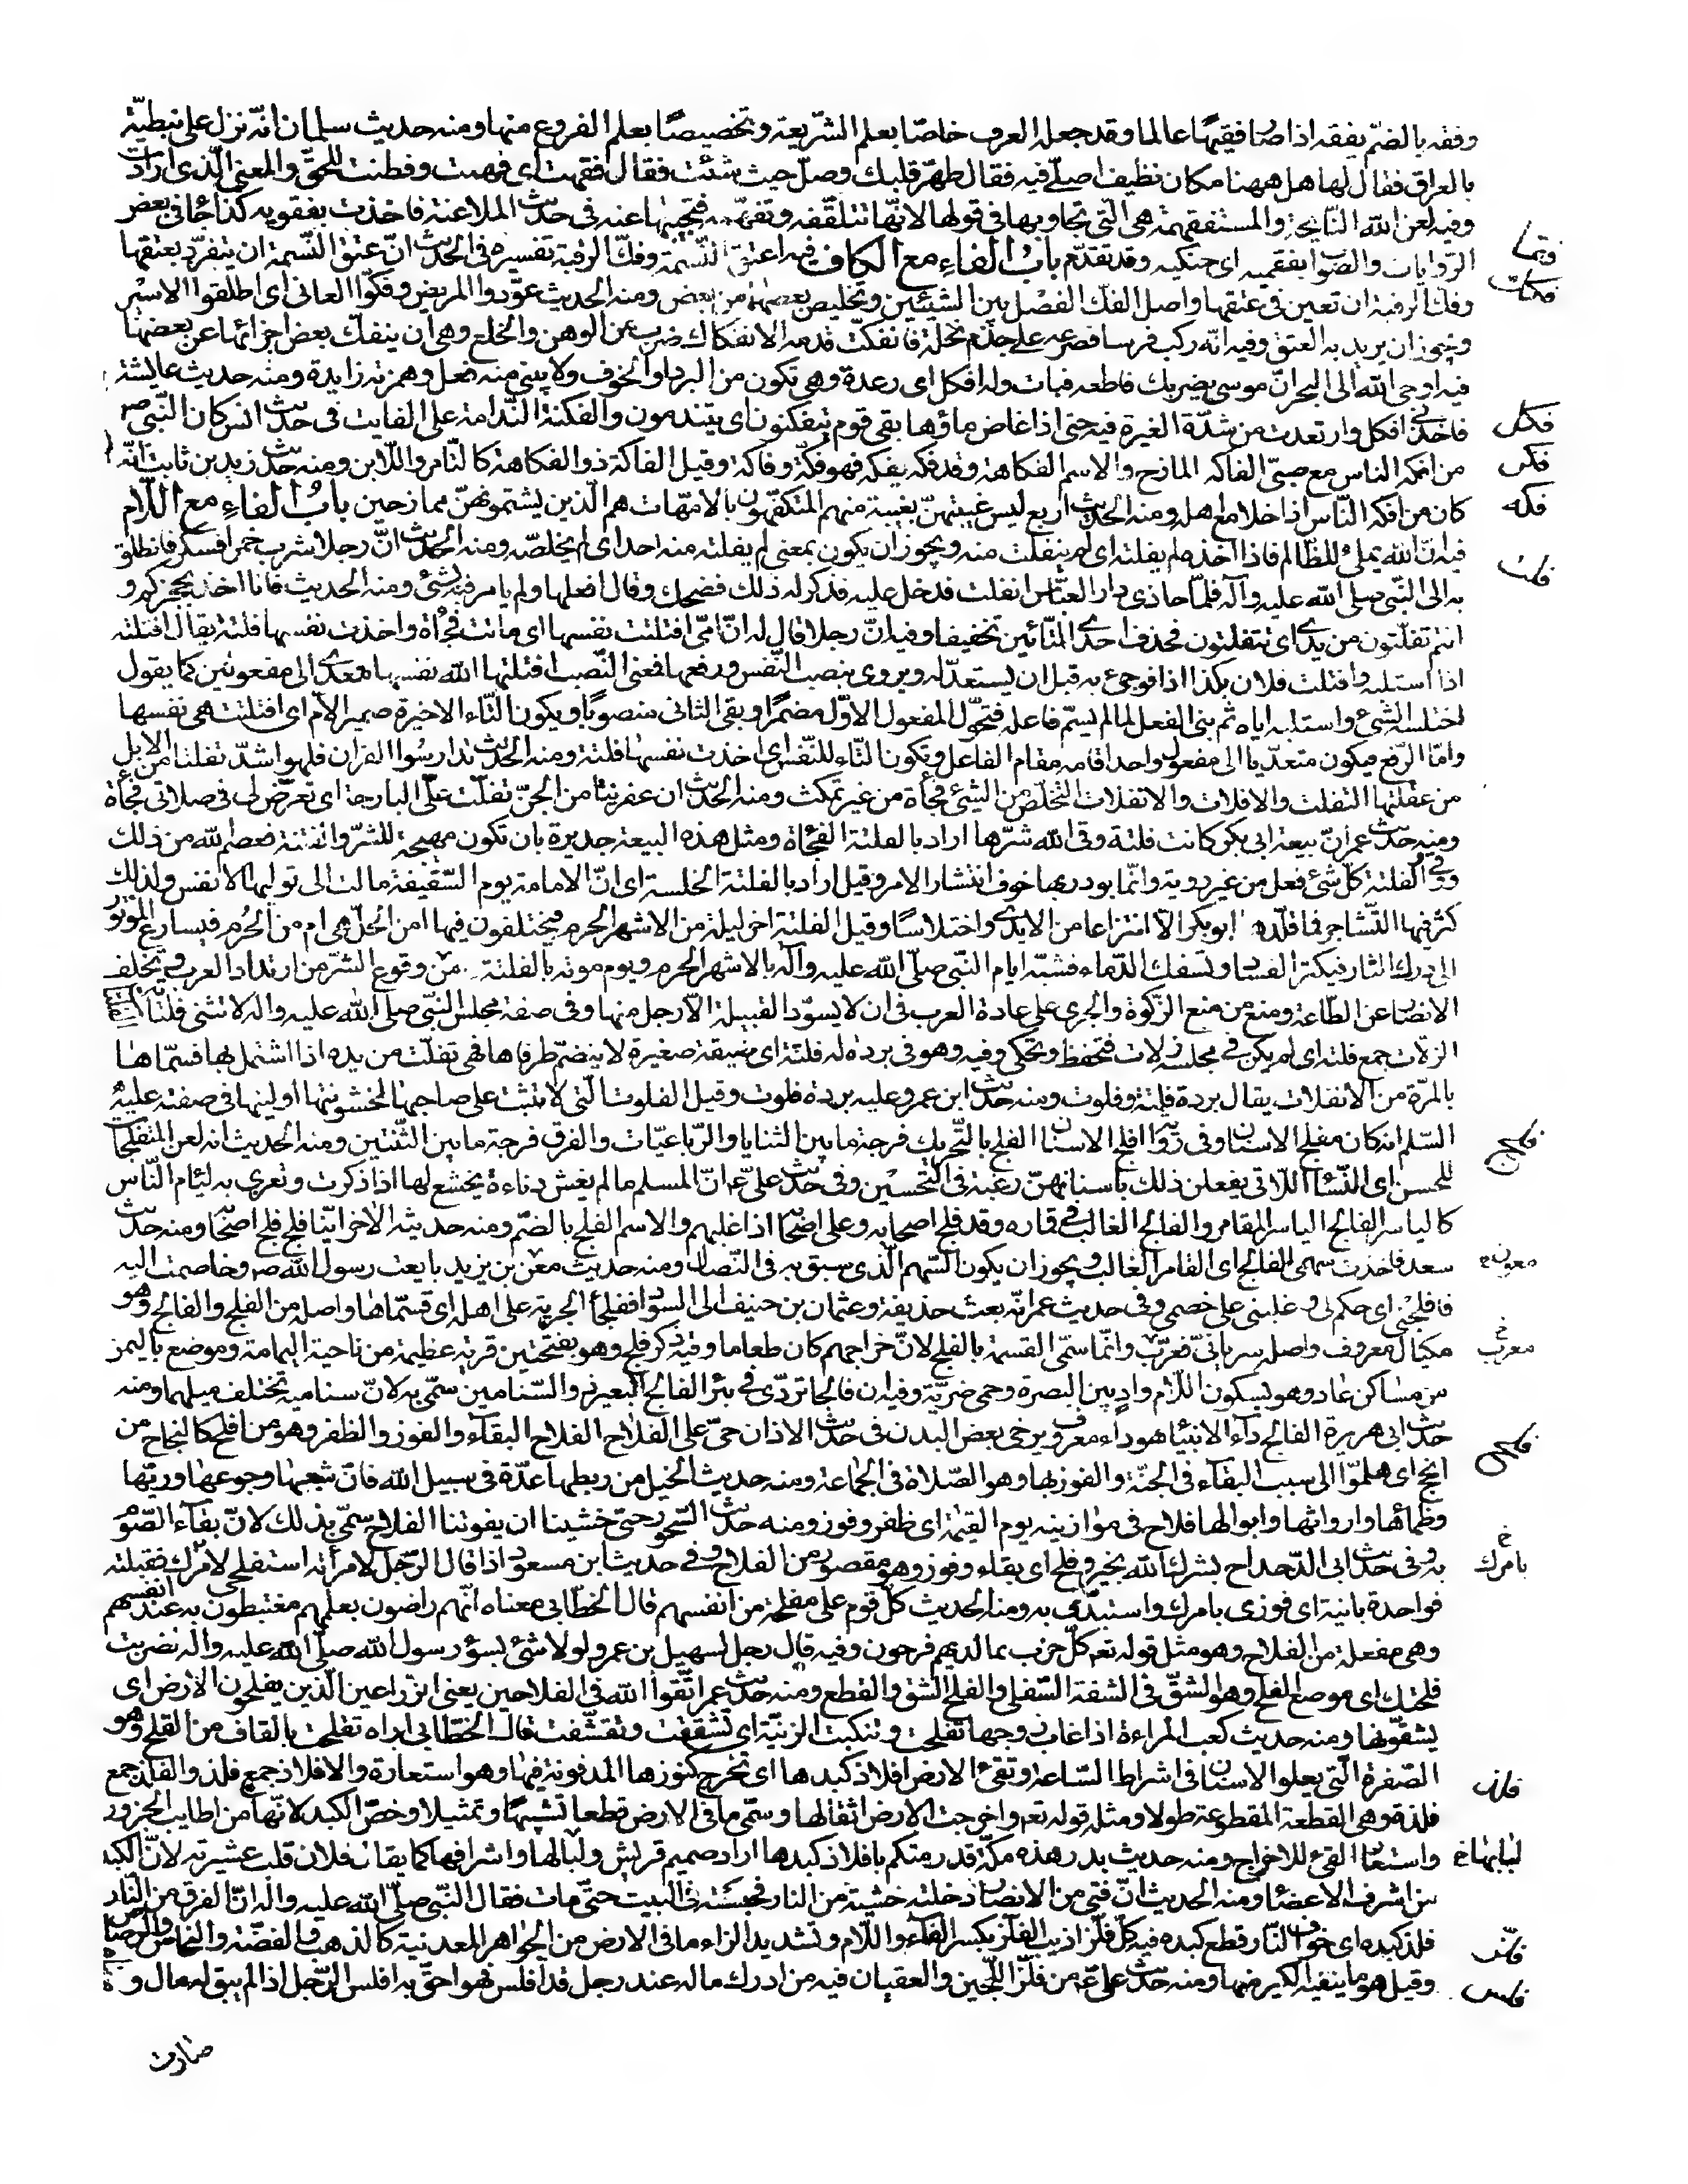 وفقه بالضمّ يفقه اذا صار فقيهًا عالما وقد جعله العرف خاصّا بعلم الشّريعة وتخصيصًا بعلم الفروع منها ومنه حديث سلمان انّه نزل على نبطيّة
بالعراق فقال لها هل ههنا مكان نظيف اصلّي فيه فقال طهّر قلبك وصلّ حيث شئت فقال فقهت اى فهمت وفطنت للحقّ والمعنى الّذى ارادت
وفيه لعن الله النّايحة والمستفقهة هى الّتى تجاوبها فى قولها لانّها تتلقّفه وتفهّمه فتجيبها عنه فى حديث الملاعنة فاخذت بفقويه كذا جاء فى بعض
فقما
الرّوايات والصّواب بفقميه اى حنكيه وقد تقدّم باب الفاء مع الكاف فيه اعتق النّسمة وفكّ الرّقبة تفسيره فى الحديث انّ عتق النّسمة ان يتفرّد بعتقها
فكك
وفكّ الرقبة ان تعين فى عتقها واصل الفكّ الفصل بين الشيئين وتخليص بعضهما من بعض ومنه الحديث عوّدوا المريض وفكّوا العانى اى اطلقوا الاسير
ويجوز ان يريد به العتق وفيه انّه ركب فرسا فصرعه على جذم نخلة فانفكّت قدمه الانفكاك ضرب من الوهن والخلع وهى ان ينفكّ بعض اجزائها عن بعض
فيه اوحى الله الى البحر انّ موسى يضربك فاطعه فبات وله افكل اى رعدة وهى تكون من البرد او الخوف ولا يبنى منه فعل وهمزته زايدة ومنه حديث عايشة
فكل
فاخذنى افكل وارتعدت من شدّة الغيرة فيه حتى اذا غاض ماؤها بقى قوم يتفكنون اى يتندمون والفكنة النّدامة على الفايت فى حديث انس كان النّبى ص
فكن
من افكه الناس مع صبىّ الفاكه المازح والاسم الفكاهة وقد فكه يفكه فهو فكه وفاكه وقيل الفاكه ذو الفكاهة كالتّامر واللّابن ومنه حديث زيد بن ثابت انّه
فكه
كان من افكه النّاس اذا خلا مع اهله ومنه الحديث اربع ليس غيبتهنّ بغيبة منهم المتفكّهون بالامّهات هم الّذين يشتمونهنّ ممازحين باب الفاء مع اللّام
فيه انّ الله يملى للظّالم فاذا اخذه لم يفلته اى لم ينفلت منه ويجوز ان يكون بمعنى لم يفلته منه احد اى لم يخلصه ومنه الحديث انّ رجلا شرب خمرا فسكر فانطلق
فلت
به الى النّبى صلى الله عليه وآله فلمّا حاذى دار العبّاس انفلت فدخل عليه فذكر له ذلك فضحك وقال افعلها ولم يامر فيه بشئ ومنه الحديث فانا اخذ بحجزكم و
انتم تفلّتون من يدى اى تتفلّتون فحذف احدى التّائين تخفيفا وفيه انّ رجلا قال له انّ امّى افتلتت نفسها اى ماتت فجأة واخذت نفسها فلتة يقال افتلته
اذا استلبه وافتلت فلان بكذا اذا فوجئ به قبل ان يستعدّ له ويروى بنصب النّفس ورفعها فمعنى النّصب افتلتها الله نفسها معدى الى مفعولين كما يقول
اختلسه الشئ واستلبه اياه ثم بنى الفعل لما لم يسمّ فاعله فتحوّل المفعول الاوّل مضمرا وبقى الثانى منصوبا ويكون التّاء الاخيرة ضمير الامّ اى افتلتت هى نفسها
وامّا الرّفع فيكون متعدّيا الى مفعول واحد اقامه مقام الفاعل وتكون التّاء للنّفس اى اخذت نفسها فلتة ومنه الحديث تدارسوا القران فلهو اشدّ تفلتا من الابل
من عقلها التفلت والافلات والانفلات التّخلّص من الشئ فجأة من غير تمكث ومنه الحديث ان عفريتا من الجنّ تفلّت علىّ البارحة اى تعرّض لى فى صلاتى فجأة
ومنه حديث عمر انّ بيعة ابى بكر كانت فلتة وقى الله شرّها اراد بالفلتة الفجأة ومثل هذه البيعة جديرة بان تكون مهيجة للشرّ والفتنة فعصم الله من ذلك
ووقى الفلتة كلّ شئ فعل من غير رويّة وانّما بودر بها خوف انتشار الامر وقيل اراد بالفلتة الخلسة اى انّ الامامة يوم السّقيفة مالت الى توليها الانفس ولذلك
كثر فيها التّشاجر فما قلّدها ابو بكر الّا انتزاعا من الايدى واختلاسا وقيل الفلتة اخر ليلة من الاشهر الحرم فيختلفون فيها امن الحلّ هى ام من الحرم فيسارع الموتور
الى درك الثار فيكثر الفساد وتسفك الدّماء فشبّه ايام النّبى صلّى الله عليه وآله بالاشهر الحرم ويوم موته بالفلتة من وقوع الشّر من ارتداد العرب وتخلف
الانصار عن الطّاعة ومنع من منع الزّكوة والجرى على عادة العرب فى ان لا يسوّد القبيلة الّا رجل منها وفى صفة مجلس النبّى صلى الله عليه وآله لا تنثى فلتاته
الزلّات جمع فلتة اى لم يكن فى مجلسه زلات فتحفظ وتحكى وفيه وهو فى بردة له فلتة اى ضيقة صغيرة لا ينضمّ طرفاها فهى تفلّت من يده اذا اشتمل بها فسمّاها
بالمرّة من الانفلات يقال بردة فلتة وفلوت ومنه حديث ابن عمر وعليه بردة فلوت وقيل الفلوت الّتى لا تثبت على صاحبها لخشونتها او لينها فى صفته عليه
فلج
السّلم انه كان مفلج الاسنان وفى رواية افلج الاسنان الفلج بالتّحريك فرجة ما بين الثنايا والرّباعيّات والفرق فرجة ما بين الثّنيتين ومنه الحديث انه لعن المتفلجات
للحسن اى النّساء اللّاتى يفعلن ذلك باسنانهنّ رغبة فى التّحسين وفى حديث علىّ ع انّ المسلم ما لم يغش دناءة يخشع لها اذا ذكرت وتغرى به لئام النّاس
كالياسر الفالج الياسر المقامر والفالج الغالب فى قماره وقد فلج اصحابه وعلى اصحابه اذا غلبهم والاسم الفلج بالضّم ومنه حديثه الاخر ايّنا فلج فلج اصحابه ومنه حديث
سعد فاخذت سهمى الفالج اى القامر الغالب ويجوز ان يكون السّهم الّذى سبق به فى النّضال ومنه حديث معن بن يزيد بايعت رسول الله ص وخاصمت اليه
فافلجنى اى حكم لى وغلبنى على خصمى وفى حديث عمر انّه بعث حذيفة وعثمان بن حنيف الى السواد ففلجا الجزية على اهله اى قسّماها واصله من الفلج والفالج وهو
معرب خ
مكيال معروف واصله سريانىّ فعرّب وانّما سمّى القسمة بالفلج لانّ خراجهم كان طعاما وفيه ذكر فلج وهو بفتحتين قرية عظيمة من ناحية اليمامة وموضع باليمن
من مساكن عاد وهو بسكون اللّام وادٍ بين البصرة وحمى ضريّة وفيه ان فالجا تردّى فى بئر الفالج البعير ذو السّنامين سمّى به لانّ سناميه تختلف ميلهما ومنه
حديث ابى هريرة الفالج داء الانبياء هو داء معروف يرخى بعض البدن فى حديث الاذان حىّ على الفلاح الفلاح البقاء والفوز والظفر وهو من افلح كالنجاح من
فلح
انجح اى هلمّوا الى سبب البقاء فى الجنّة والفوز بها وهو الصّلاة فى الجماعة ومنه حديث الخيل من ربطها عدّة فى سبيل الله فانّ شبعها وجوعها وريّها
وظمأها وارواثها وابوالها فلاح فى موازينه يوم القيمة اى ظفر وفوز ومنه حديث السّحور حتى خشينا ان يفوتنا الفلاح سمّى بذلك لانّ بقاء الصّوم
بامرك خ
به وفى حديث ابى الدّحداح بشرك الله بخير وفلح اى بقاء وفوز وهو مقصور من الفلاح وفى حديث ابن مسعود اذا قال الرّجل لامرأته استفلحى لامرك فقبلته
فواحدة بائنة اى فوزى بامرك واستبدّى به ومنه الحديث كلّ قوم على مفلحة من انفسهم قال الخطّابى معناه انّهم راضون بعلمهم مغتبطون به عند انفسهم
وهى مفعلة من الفلاح وهو مثل قوله تع كلّ حزب بما لديهم فرحون وفيه قال رجل لسهيل بن عمرو لولا شئ يسؤ رسول الله صلّى الله عليه وآله لضربت
فلحتك اى موضع الفلح وهو الشقّ فى الشفة السّفلى والفلح الشق والقطع ومنه حديث عمر اتّقوا الله فى الفلاحين يعنى الزراعين الّذين يفلحون الارض اى
يشقّونها ومنه حديث كعب المراءة اذا غاب زوجها تفلحت وتنكبت الزينة اى تشققت وتقشّفت قال الخطّابى اراه تقلحت بالقاف من القلح وهو
الصّفرة الّتى يعلوا الاسنان فى اشراط السّاعة وتقئ الارض افلاذ كبدها اى تخرج كنوزها المدفونة فيها وهو استعارة والافلاذ جمع فلذ والفلذ جمع
فلذ
فلذة وهى القطعة المقطوعة طولا ومثله قوله تع واخرجت الارض اثقالها وسمّى ما فى الارض قطعا تشبيها وتمثيلا وخصّ الكبد لانّها من اطايب الجزور
لبابها خ
واستعار القئ للاخراج ومنه حديث بدر هذه مكّة قد رمتكم بافلاذ كبدها اراد صميم قريش ولبابها واشرافها كما يقال فلان قلب عشيرته لانّ الكبد
من اشرف الاعضاء ومنه الحديث انّ فتى من الانصار دخلته خشية من النار فحبسته فى البيت حتّى مات فقال النّبى صلّى الله عليه وآله انّ الفرق من النّار
فلذ كبده اى خوف النّار قطع كبده فيه كلّ فلّز اذيب الفلزّ بكسر الفاء واللّام وتشديد الزاء ما فى الارض من الجواهر المعدنية كالذهب والفضّة والنحاس والرصاص
فلز
وقيل هو ما ينفيه الكير منها ومنه حديث علىّ ع من فلزّ اللّجين والعقيان فيه من ادرك ماله عند رجل قد افلس فهو احقّ به افلس الرّجل اذا لم يبق له مال و
فلس
صارت